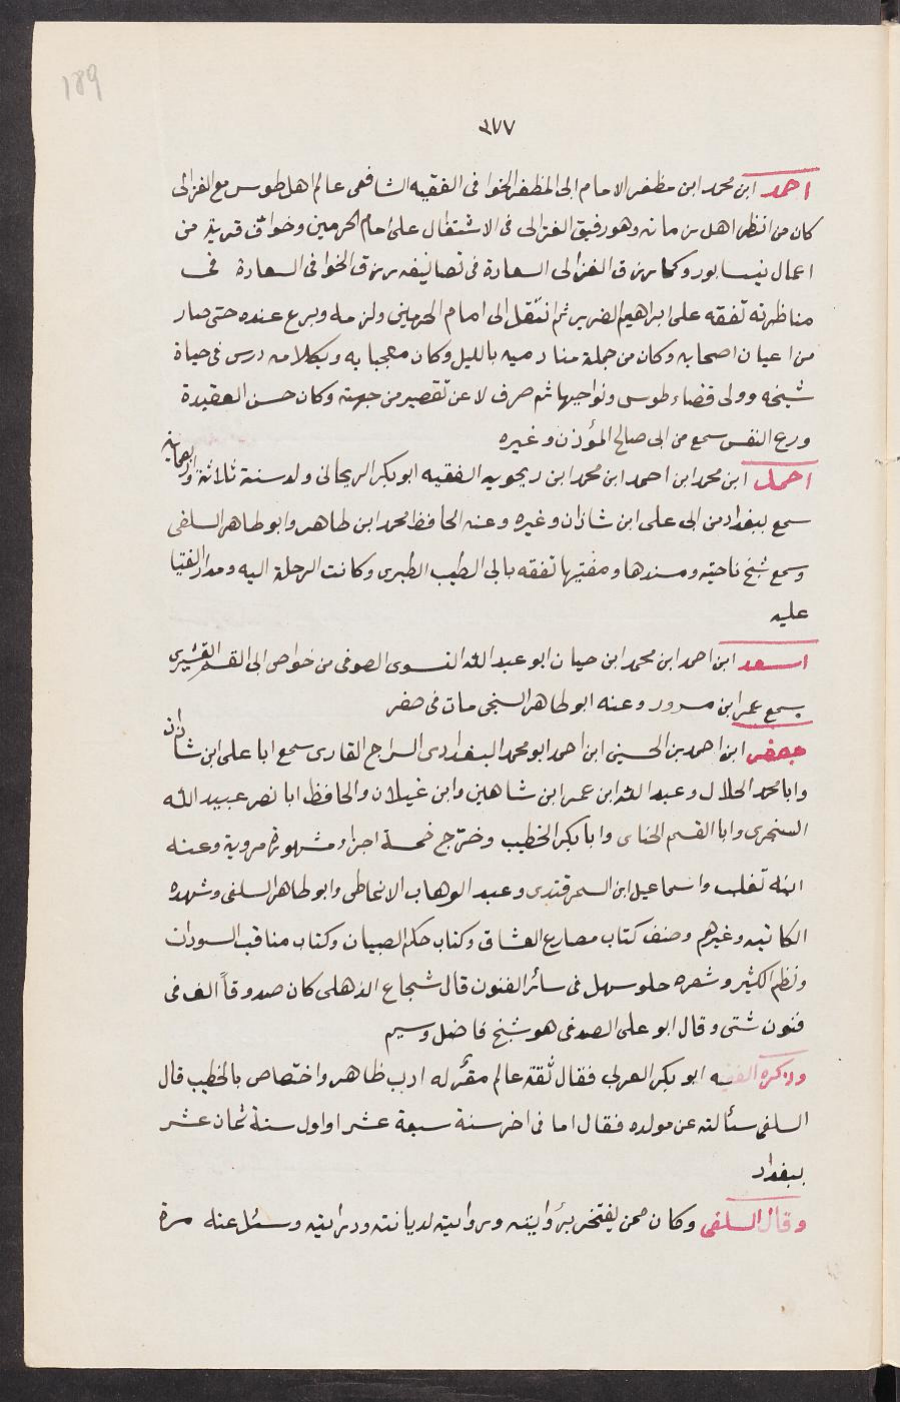 189
٣٧٧
احمد ابن محمد ابن مظفر الامام ابى المظفر الخوافى الفقيه الشافعى عالم اهل طوس مع الغزالى
كان من انظر اهل زمانه وهو رفيق الغزالى فى الاشتغال على امام الحرمين وخواف قرية من
اعمال نيسابور وكما رزق الغزالى السعادة فى تصانيفه رزق الخوافى السعادة فى
مناظرته تفقه على ابراهيم الضرير ثم انتقل الى امام الحرمين ولزمه وبرع عنده حتى صار
من اعيان اصحابه وكان من جملة منادميه بالليل وكان معجبا به وبكلامه درس فى حياة
شيخه وولى قضاء طوس ونواحيها ثم صرف لا عن تقصير من جهته وكان حسن العقيدة
ورع النفس سمع من ابى صالح المؤذن وغيره
احمد ابن محمد ابن احمد ابن محمد ابن زنجويه الفقيه ابو بكر الزنجانى ولد سنة ثلاثة واربعماية
سمع ببغداد من ابى على ابن شاذان وغيره وعنه الحافظ محمد ابن طاهر وابو طاهر السلفى
وسمع شيخ ناحيته ومسندها ومفتيها تفقه بابى الطيب الطبرى وكانت الرحلة اليه ومدار الفتيا
عليه
اسعد ابن احمد ابن محمد ابن حيان ابو عبد الله النسوى الصوفى من خواص ابى القسم القشيرى
يسمع عمر ابن مسرور وعنه ابو طاهر السنجى مات فى صفر
جعفر ابن احمد بن الحسين ابن احمد ابو محمد البغدادى السراج القارى سمع ابا على ابن شاذان
وابا محمد الخلال وعبد الله ابن عمر ابن شاهين وابن غيلان والحافظ ابا نصر عبيد الله
السنجرى وابا القسم الحناى وابا بكر الخطيب وخرّج خمسة اجزاء مشهورة مروية وعنه
ابنه تغلب واسماعيل ابن السمرقندى وعبد الوهاب الانماطى وابو طاهر السلفى وشهده
الكاتبه وغيرهم وصنف كتاب مصارع العشاق وكتاب حكم الصبيان وكتاب مناقب السودان
ونظم الكثير وشعره حلو سهل فى سائر الفنون قال شجاع الذهلى كان صدوقاً الف فى
فنون شتى وقال ابو على الصدفى هو شيخ فاضل وسيم
وذكره الفقيه ابو بكر العربى فقال ثقة عالم مقرئ له ادب ظاهر واختصاص بالخطيب قال
السلفى سئالته عن مولده فقال اما فى اخر سنة سبعة عشر او اول سنة ثمان عشر
ببغداد
وقال السلفى وكان ممن يفتخر برؤايته وروايته لديانته ودرايته وسئل عنه مرة